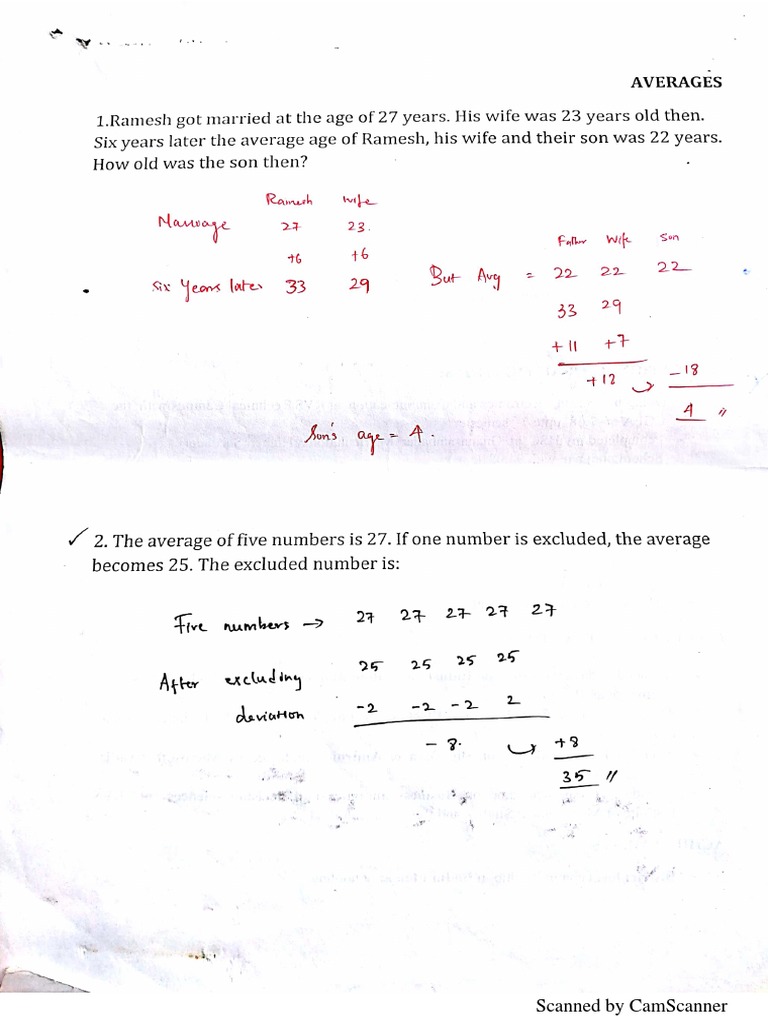 AVERAGES
1.Ramesh got married at the age of 27 years. His wife was 23 years old then.
Six years later the average age of Ramesh, his wife and their son was 22 years.
How old was the son then?
Ramesh wife
Marriage 27 23.
+6 +6
Six Years later 33 29
Father Wife Son
But Avg = 22 22 22
33 29
+11 +7
+12 -18
4 //
Son's age = 4.
✓ 2. The average of five numbers is 27. If one number is excluded, the average
becomes 25. The excluded number is:
Five numbers → 27 27 27 27 27
After excluding 25 25 25 25
deviation -2 -2 -2 2
- 8. +8
35 //
Scanned by CamScanner